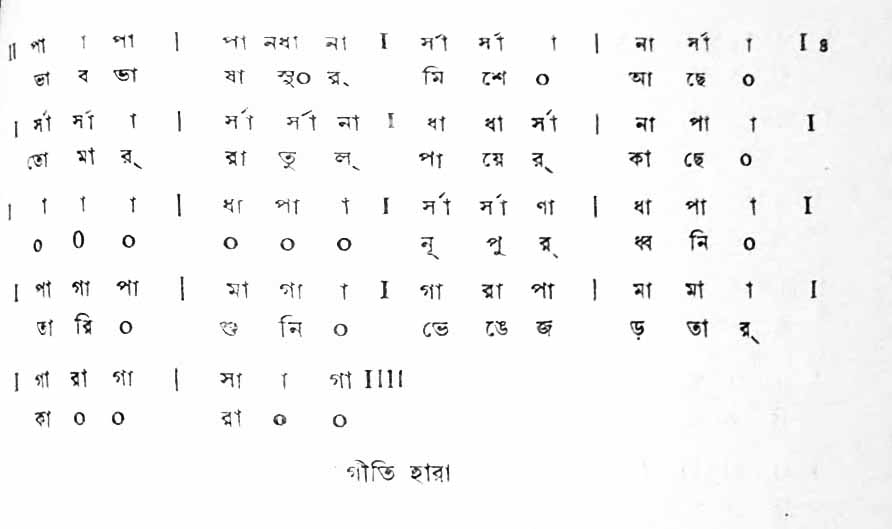 II পা া পা | পা নধা না I র্সা র্সা া | না র্সা া I ৪
ভা ব ভা ষা সু০ র্ মি শে ০ আ ছে ০
I র্সা র্সা া | র্সা র্সা না I ধা ধা র্সা | না পা া I
তো মা র্ রা তু ল্ পা য়ে র্ কা ছে ০
I া া া | ধা পা া I র্সা র্সা ণা | ধা পা া I
০ ০ ০ ০ ০ ০ নূ পু র্ ধ্ব নি ০
I পা গা পা | মা গা া I গা রা পা | মা মা া I
তা রি ০ শু নি ০ ভে ঙে জ ড় তা র্
I গা রা গা | সা া গা IIII
কা ০ ০ রা ০ ০
গীতি হারা